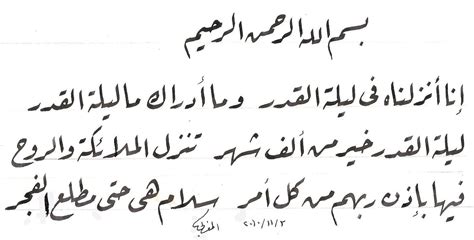 بسم الله الرحمن الرحيم
إنا أنزلناه فى ليلة القدر وما أدراك ما ليلة القدر
ليلة القدر خير من ألف شهر تنزل الملائكة والروح
فيها بإذن ربهم من كل أمر سلام هى حتى مطلع الفجر
٢٠١٠/١١/٣